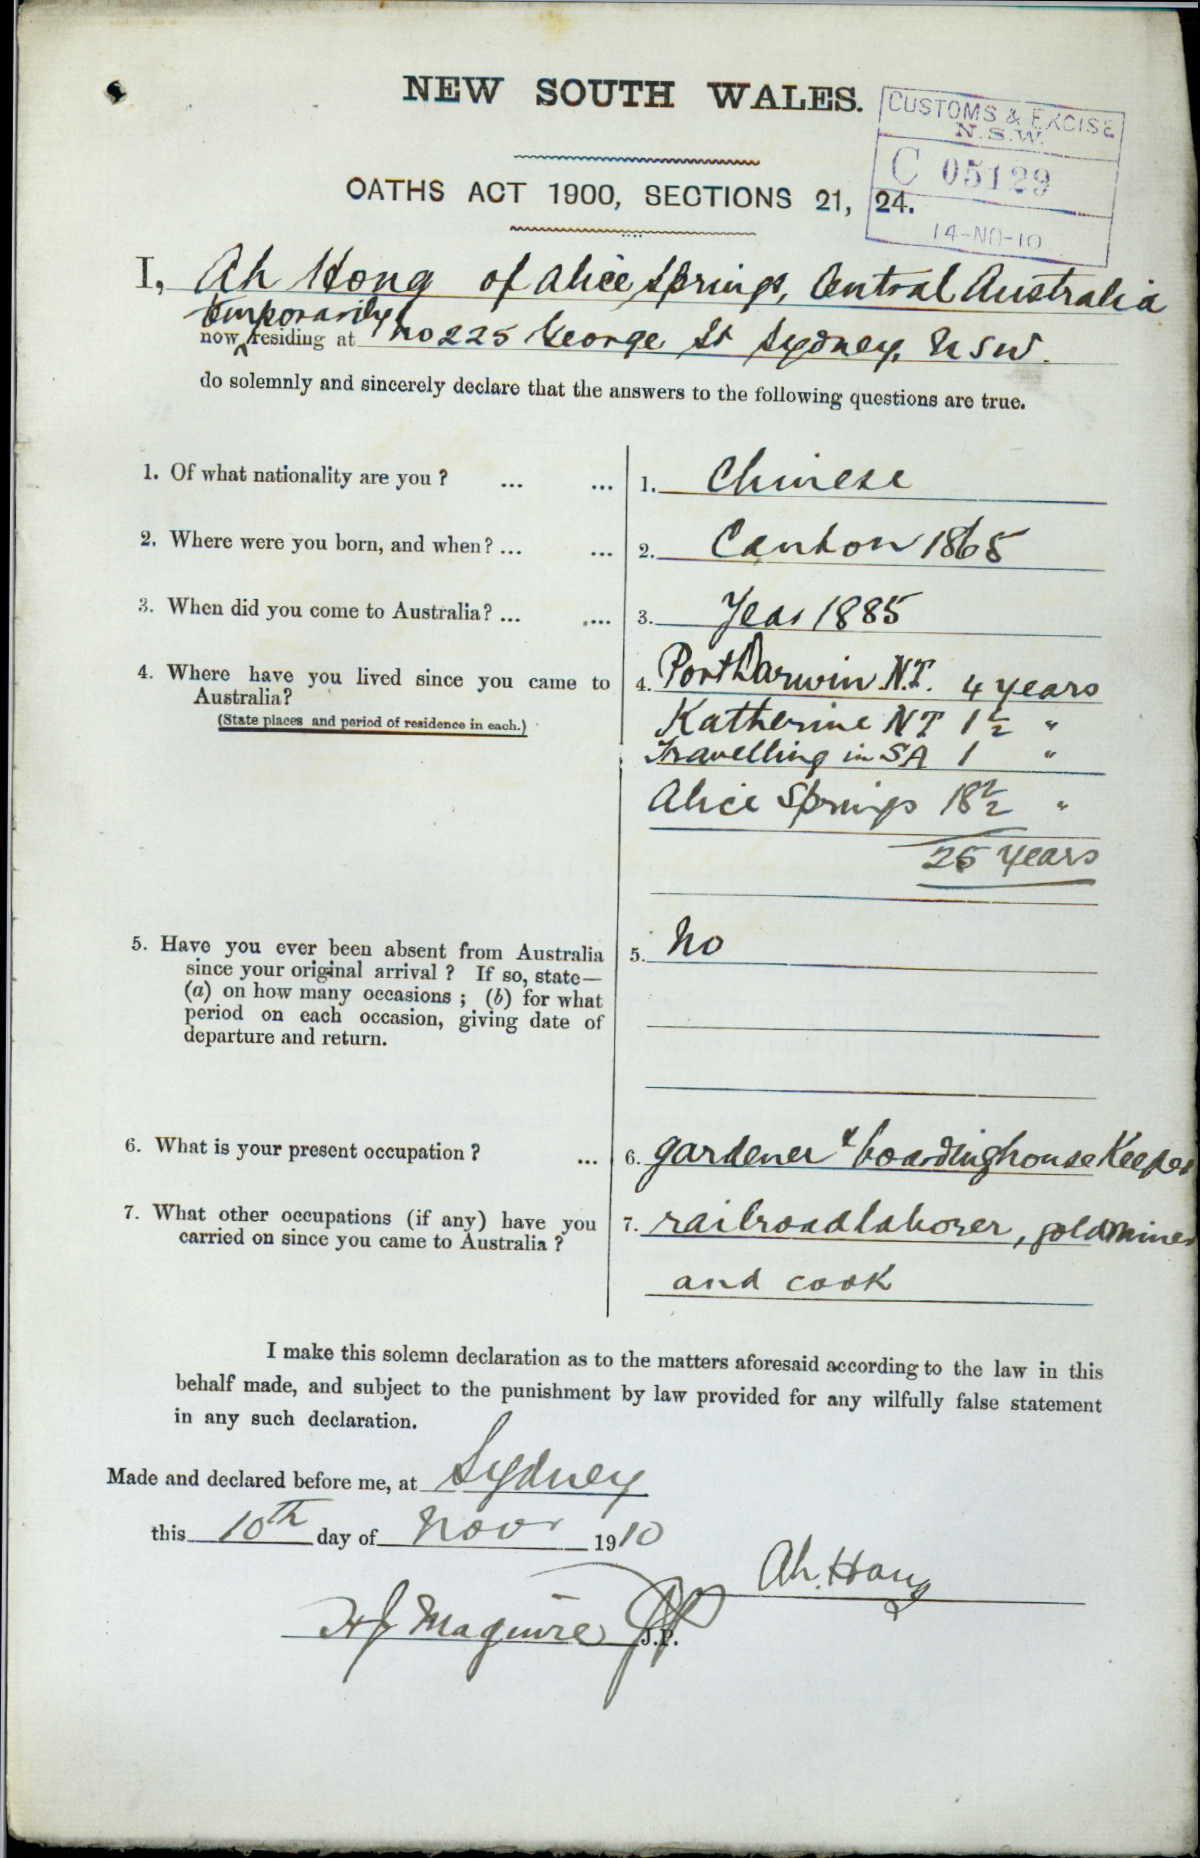 NEW SOUTH WALES.
CUSTOMS & EXCISE
N.S.W.
C 05129
14-NO-10
OATHS ACT 1900, SECTIONS 21, 24.
I, Ah Hong of Alice Springs, Central Australia
temporarily
now ^ residing at No 225 George St Sydney, NSW.
do solemnly and sincerely declare that the answers to the following questions are true.
1. Of what nationality are you ? ... ... 1. Chinese
2. Where were you born, and when ? ... ... 2. Canton 1865
3. When did you come to Australia? ... ... 3. Year 1885
4. Where have you lived since you came to 4. Port Darwin N.T. 4 years
Australia?
(State places and period of residence in each.)
Katherine NT 1 1/2 "
Travelling in SA 1 "
Alice Springs 18 1/2 "
25 years
5. Have you ever been absent from Australia 5. No
since your original arrival ? If so, state—
(a) on how many occasions ; (b) for what
period on each occasion, giving date of
departure and return.
6. What is your present occupation ? ... 6. gardener & boardinghouse Keeper
7. What other occupations (if any) have you 7. railroad laborer, goldminer
carried on since you came to Australia ?
and cook
I make this solemn declaration as to the matters aforesaid according to the law in this
behalf made, and subject to the punishment by law provided for any wilfully false statement
in any such declaration.
Made and declared before me, at Sydney
this 10th day of Novr 1910
Ah. Hong
HJ Maguire JP
J.P.